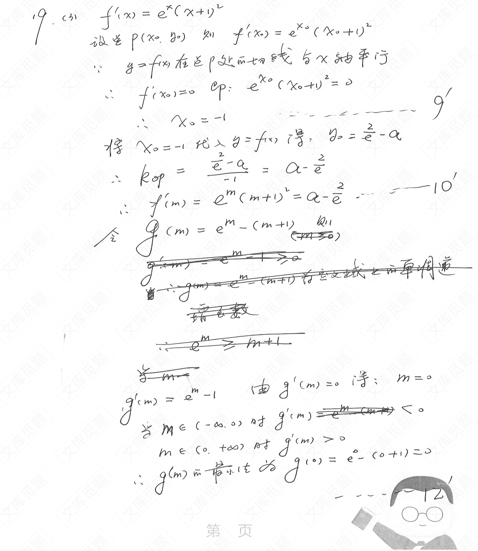 19. (3) f'(x)=e^x(x+1)^2
设点P(x_0, y_0) 则 f'(x_0)=e^{x_0}(x_0+1)^2
∵ y=f(x)在点P处的切线与x轴平行
∴ f'(x_0)=0 即: e^{x_0}(x_0+1)^2=0
∴ x_0=-1 ------ 9'
将 x_0=-1 代入 y=f(x) 得: y_0=\frac{2}{e}-a
∴ k_{OP} = \frac{\frac{2}{e}-a}{-1} = a-\frac{2}{e}
∴ f'(m)=e^m(m+1)^2=a-\frac{2}{e} ------ 10'
令 g(m)=e^m-(m+1) 则 (m≥0)
g'(m)=e^m-1≥0
∴ g(m)=e^m-(m+1)为定义域上的单调递
增函数
∴ e^m≥m+1
当 m
g'(m)=e^m-1 由 g'(m)=0 得: m=0
当 m∈(-∞,0) 时 g'(m) <0
m∈(0,+∞) 时 g'(m)>0
∴ g(m)的最小值为 g(0)=e^0-(0+1)=0
------ 12'
第 页